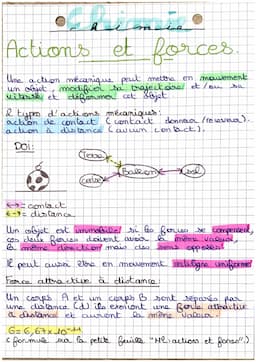 Chimie
Actions et forces.
Une action mécanique peut mettre en mouvement
un objet, modifier sa trajectoire et / ou sa
vitesse et déformer cet objet
2 types d'actions mécaniques:
action de contact (contact donneur / receveur).
action à distance (aucun contact).
DOI:
Terre
Ballon
sol
↔ = contact
↔ = distance
Un objet est immobile si les forces se compensent,
ces deux forces doivent avoir la même valeur,
la même direction mais des sens opposés.
Il peut aussi être en mouvement rectiligne uniforme
Force attractive à distance
Un corps A et un corps B sont séparés par
une distance (d) ils exercent une force attractive
à distance et auront la même valeur
G = 6,67 × 10⁻¹¹
(formule sur la petite feuille "M2: actions et forces".)